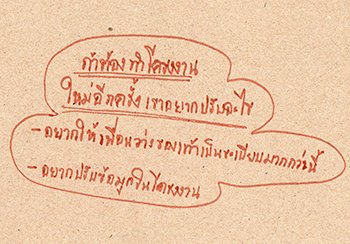 ถ้าต้องทำโครงงาน
ใหม่อีกครั้ง เราอยากปรับอะไร
- อยากให้เพื่อนวางรองเท้าเป็นระเบียบมากกว่านี้
- อยากปรับข้อมูลในโครงงาน